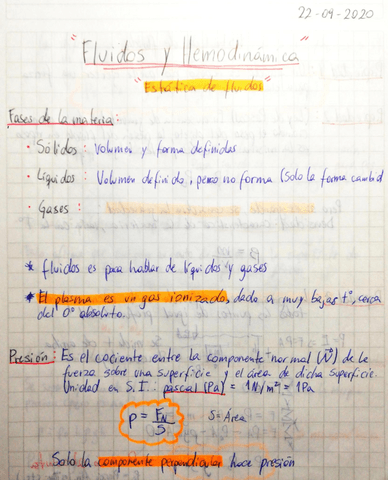 22-04-2020
"Fluidos y Hemodinámica"
"Estática de fluidos"
Fases de la materia:
• Sólidos: Volumen y forma definidas
• Líquidos: Volumen definido, pero no forma (Solo la forma cambia)
• Gases:
* fluidos es para hablar de líquidos y gases
* El plasma es un gas ionizado, dado a muy bajas t°, cerca
del 0° absoluto.
Presión: Es el cociente entre la componente normal (N) de la
fuerza sobre una superficie y el área de dicha superficie.
Unidad en S.I.: pascal (Pa) = 1N/m² = 1Pa
P = F_N / S S = Área
Solo la componente perpendicular hace presión